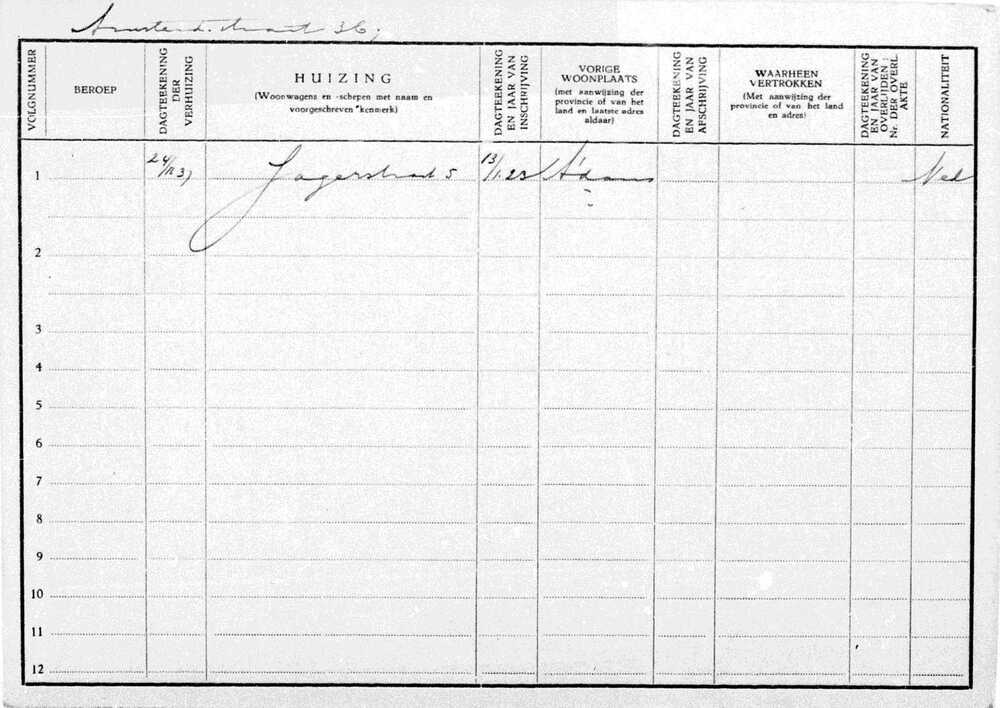 Amsterd. straat 36,
VOLGNUMMER
BEROEP
DAGTEEKENING
DER
VERHUIZING
HUIZING
(Woonwagens en -schepen met naam en
voorgeschreven kenmerk)
DAGTEEKENING
EN JAAR VAN
INSCHRIJVING
VORIGE
WOONPLAATS
(met aanwijzing der
provincie of van het
land en laatste adres
aldaar)
DAGTEEKENING
EN JAAR VAN
AFSCHRIJVING
WAARHEEN
VERTROKKEN
(Met aanwijzing der
provincie of van het land
en adres)
DAGTEEKENING
EN JAAR VAN
OVERLIJDEN
Nr. DER OVERL
AKTE
NATIONALITEIT
1 24/12 37 Jagerstraat 5 13/1.23 A'dam Ned
2
3
4
5
6
7
8
9
10
11
12